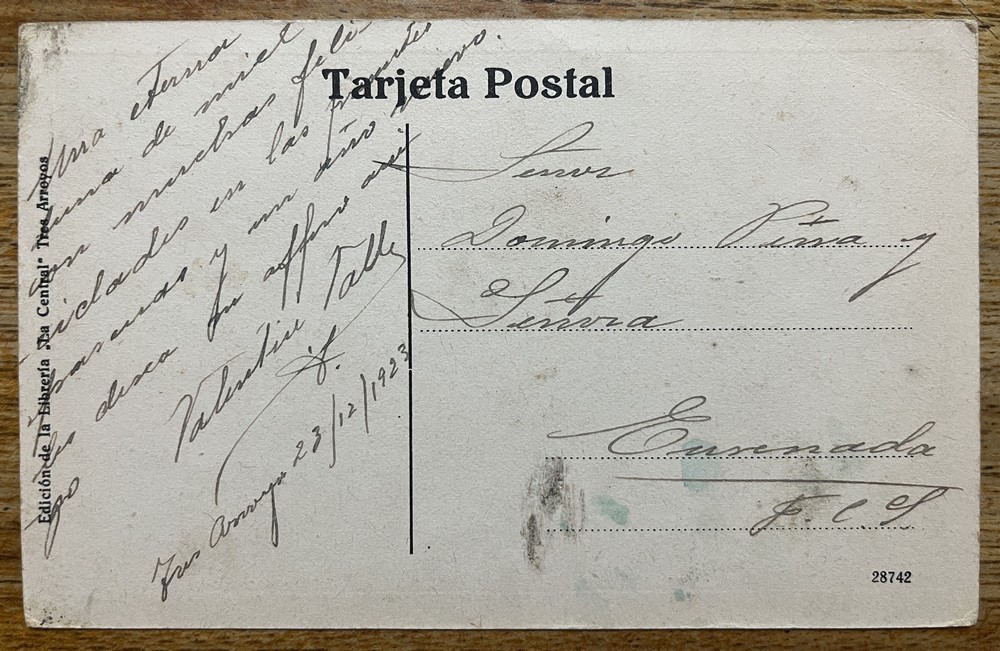 Tarjeta Postal
Una eterna
luna de miel
con muchas feli-
cidades en las presentes
pascuas y un año nuevo.
les desea su affmo ami
go
Valentin Valle
Tres Arroyos 23/12/1923
Señor
Domingo Piña y
Señora
Ensenada
F. C. S
Edición de la Librería „La Central" Tres Arroyos
28742